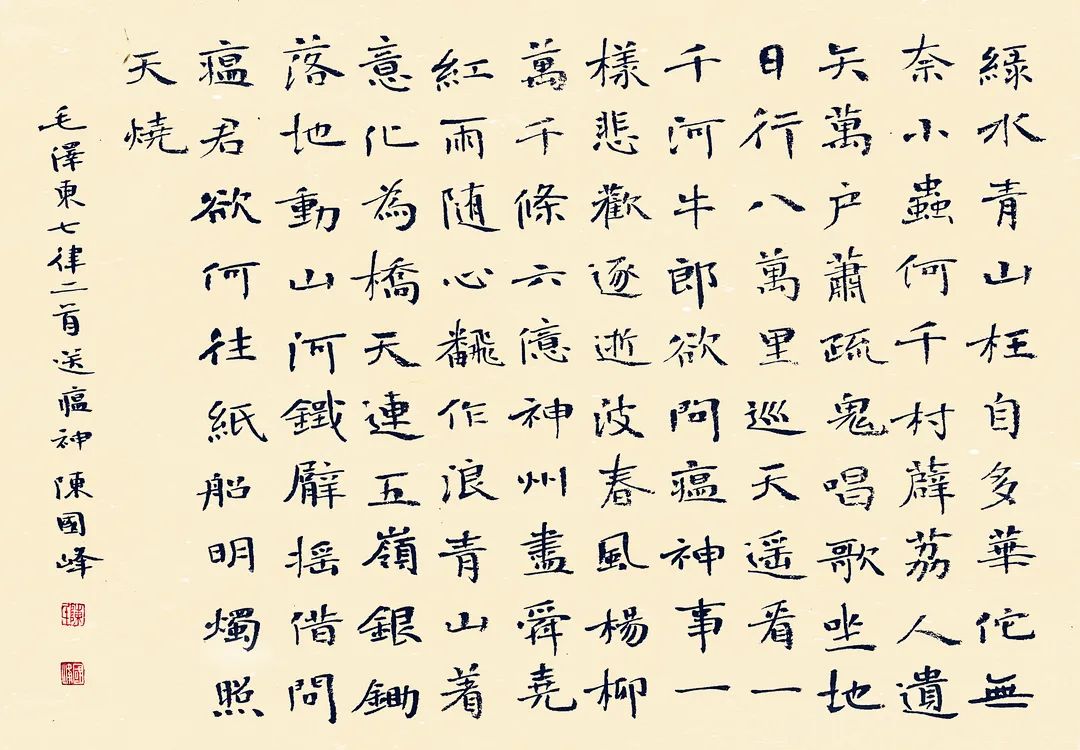 綠水青山枉自多華佗無
奈小蟲何千村薜荔人遺
矢萬户蕭疏鬼唱歌坐地
日行八萬里巡天遥看一
千河牛郎欲問瘟神事一
樣悲歡逐逝波春風楊柳
萬千條六億神州盡舜堯
紅雨随心翻作浪青山着
意化為橋天連五嶺銀鋤
落地動山河鐵臂摇借問
瘟君欲何往紙船明燭照
天燒
毛澤東七律二首送瘟神陳國峰